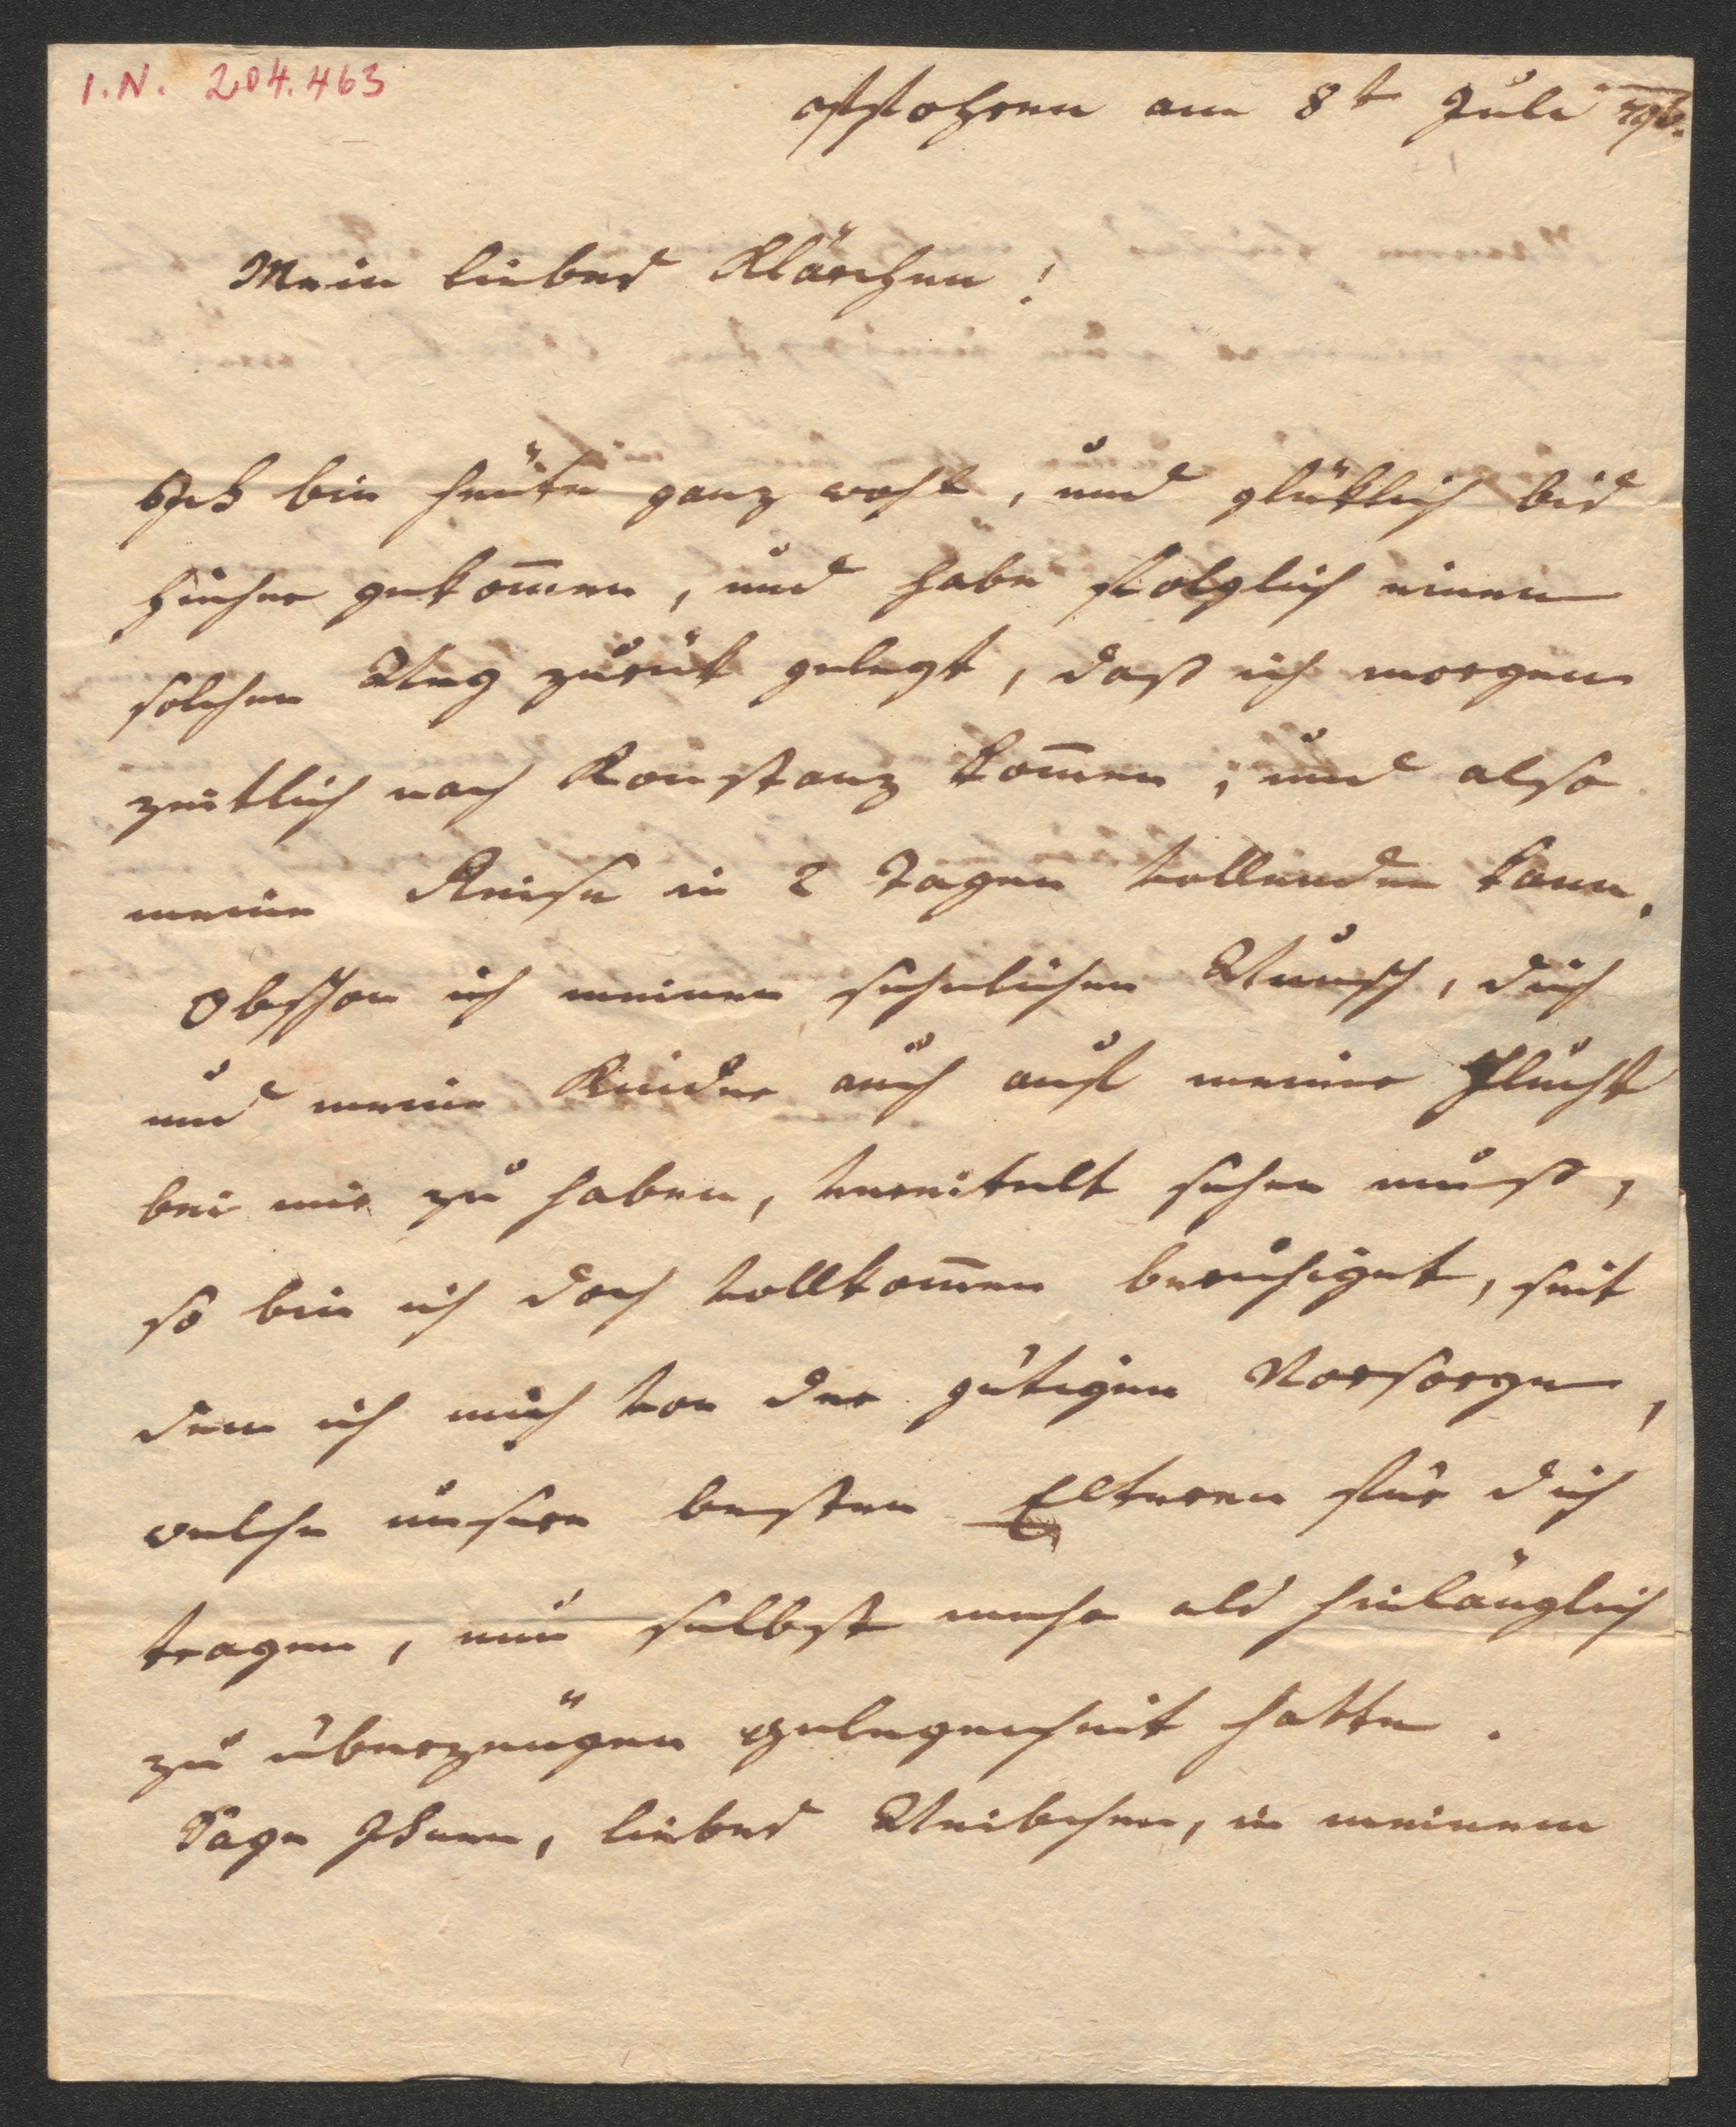 I.N. 204.463
am 8t Juli 796.
Mein liebes Klärchen!
Ich bin heüte ganz wohl, und glüklich bis
hieher gekom̅en, und habe folglich einen
solchen Weg zurük gelegt, daß ich morgen
zeitlich nach Konstanz kom̅en, und also
meine Reise in 2 Tagen vollenden kann.
Obschon ich meinen sehnlichen Wunsch, dich
und meine Kinder auch auf meiner Flucht
bei mir zu haben, vereitelt sehen muß,
so bin ich doch vollkom̅en beruhiget, seit
dem ich mich von der gütigen Vorsorge,
welche unsere besten Elteren für dich
tragen, nun selbst mehr als hinlänglich
zu überzeügen gelegenheit hatte.
Sage Ihnen, liebes Weibchen, in meinem